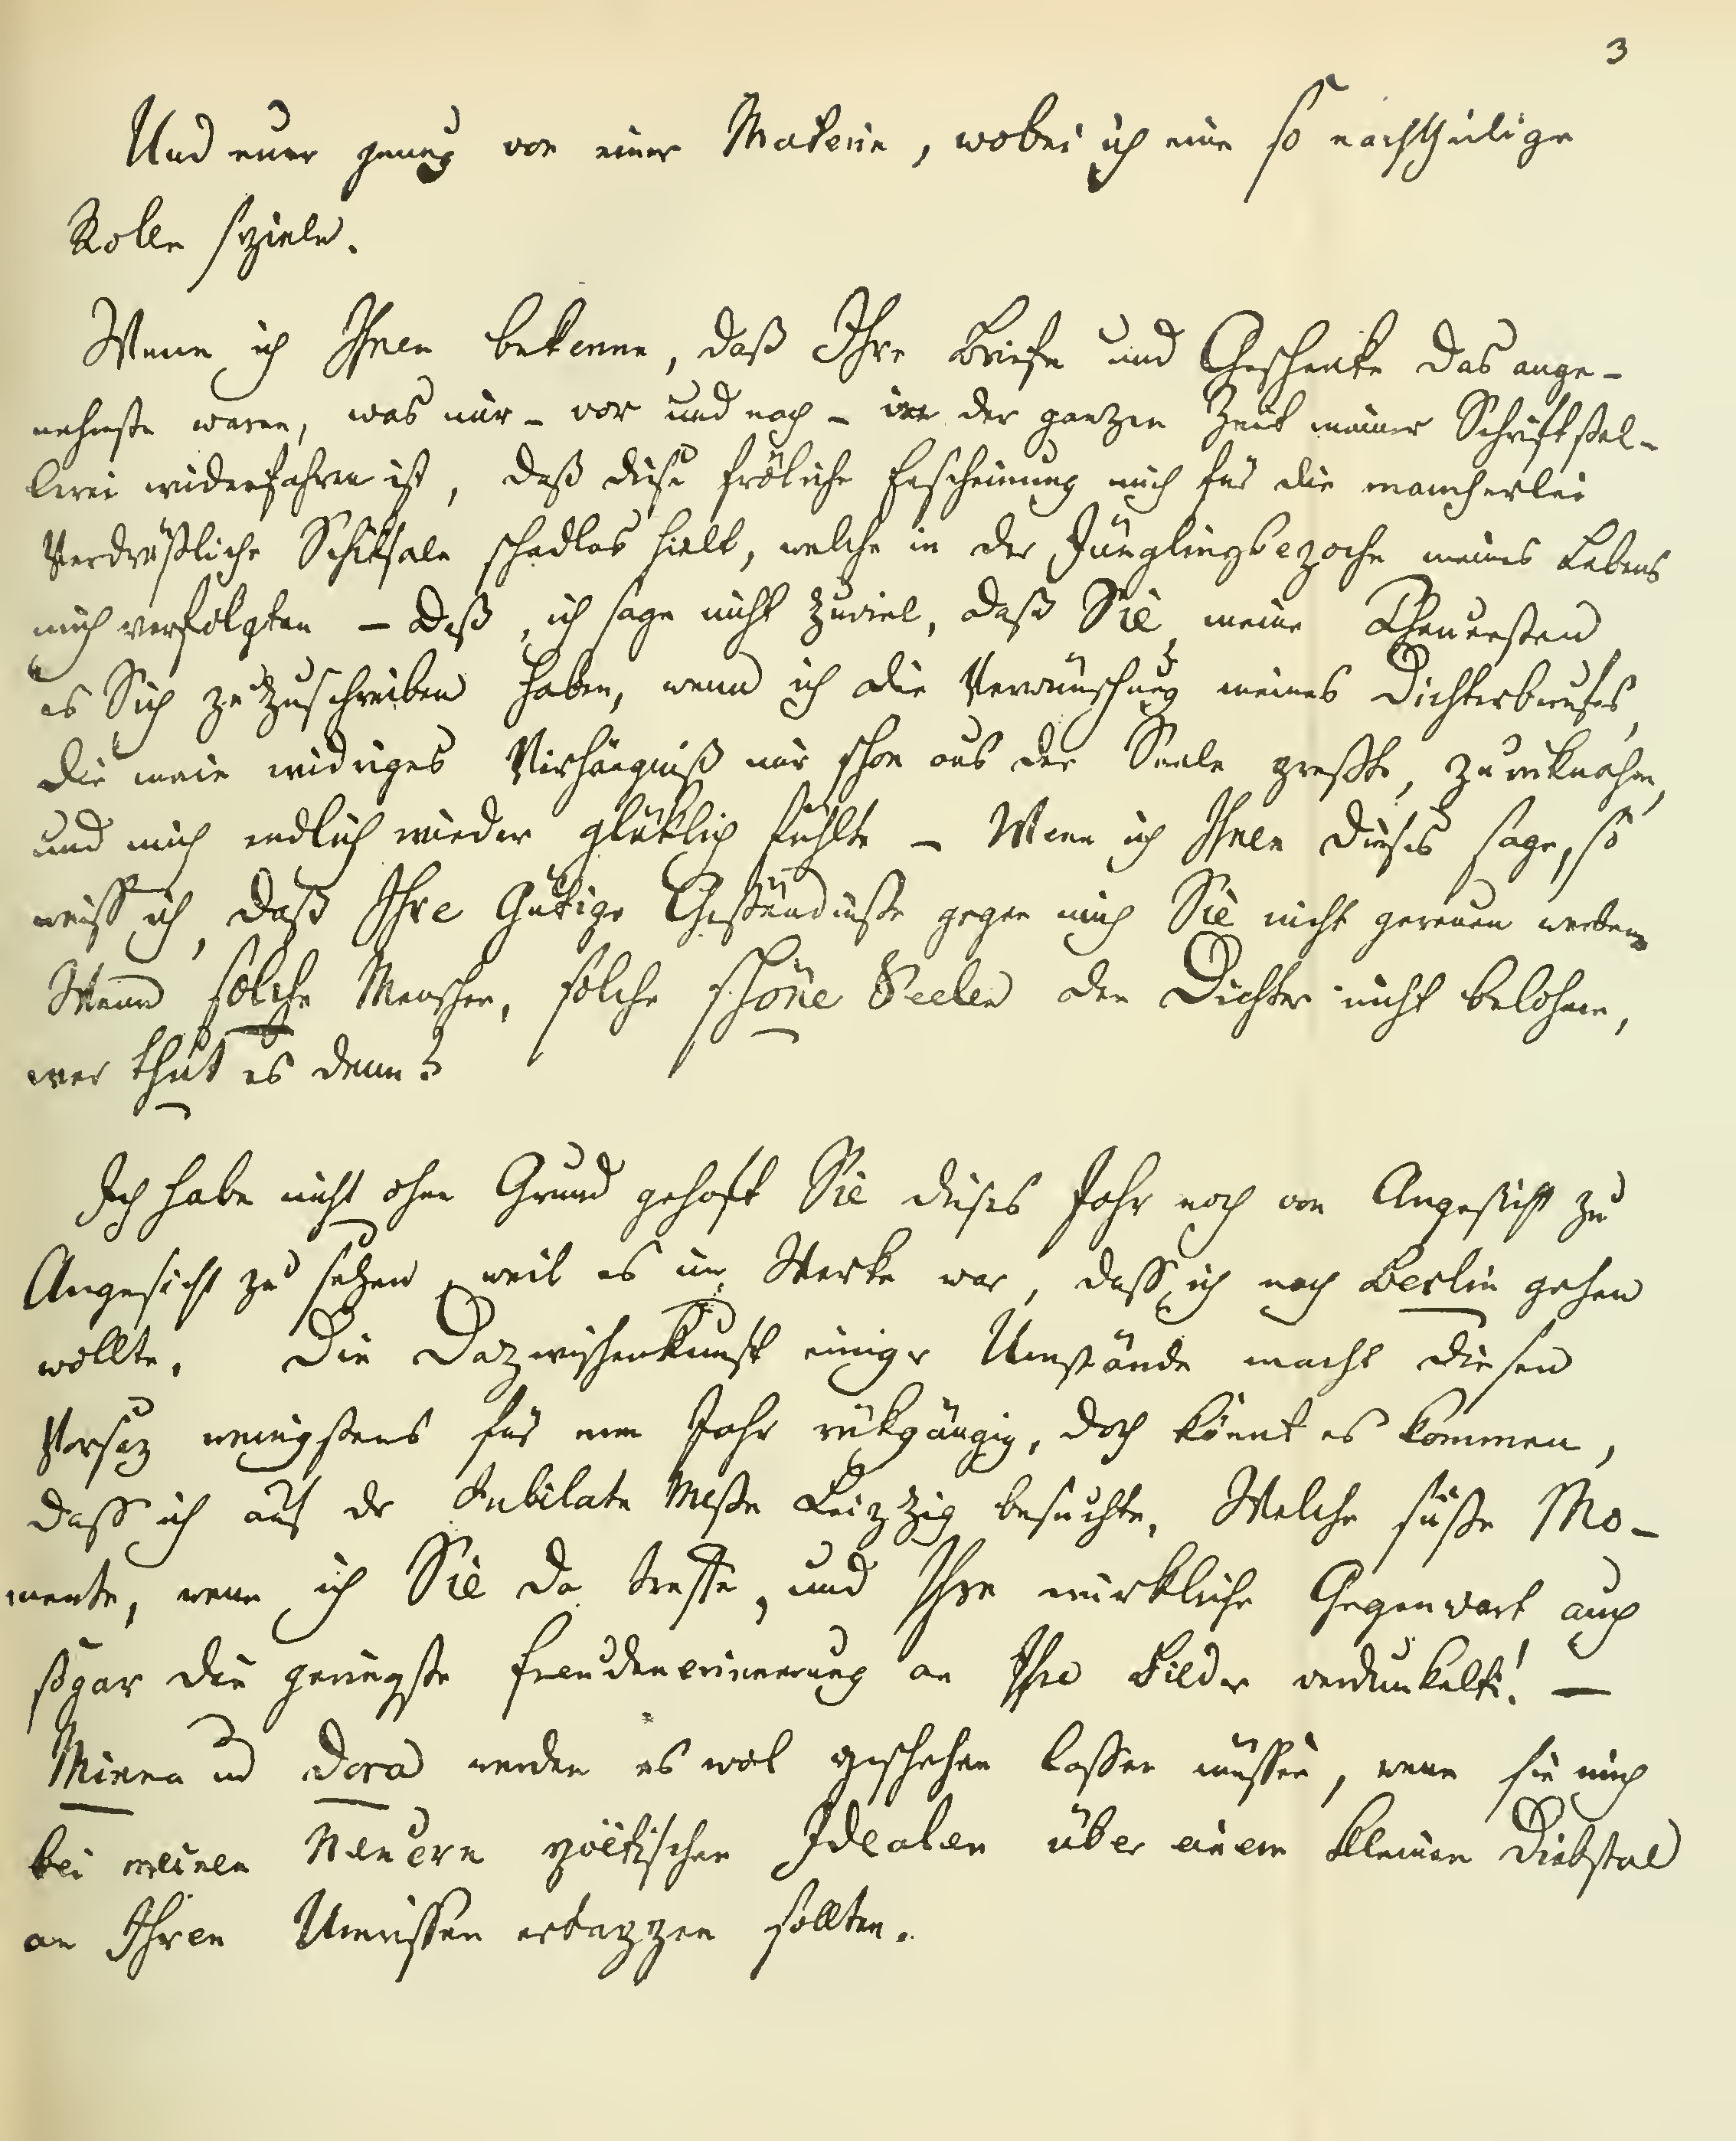 3
Und nun genug von einer Materie, wobei ich eine so nachtheilige
Rolle spiele.
Wenn ich Ihnen bekenne, daß Ihre Briefe und Geschenke das ange-
nehmste waren, was mir - vor und nach - in der ganzen Zeit meiner Schriftstel-
lerei widerfahren ist, daß diese fröliche Erscheinung mich für die mancherlei
Verdrüßliche Schiksale schadlos hielt, welche in der Jünglingsepoche meines Lebens
mich verfolgten — daß, ich sage nicht zuviel, daß Sie, meine Theuersten,
es Sich zuzuschreiben haben, wenn ich die Verwünschung meines Dichterberufes,
die mein widriges Verhängniß mir schon aus der Seele preßte, zurüknahm,
und mich endlich wieder glüklich fühlte — Wenn ich Ihnen dieses sage, so
weiss ich, daß Ihre Gütige Geständniße gegen mich Sie nicht gereuen werden.
Wenn solche Menschen, solche schöne Seelen den Dichter nicht belohnen,
wer thut es denn?
Ich habe nicht ohne Grund gehoft Sie dieses Jahr noch von Angesicht zu
Angesicht zu sehen, weil es im Werke war, dass ich nach Berlin gehen
wollte. Die Dazwischenkunft einiger Umstände macht diesen
Vorsaz wenigstens für ein Jahr rükgängig, doch könnt es kommen,
dass ich auf der Jubilate Meße Leipzig besuchte. Welche süße Mo-
mente, wenn ich Sie da treffe, und Ihre würkliche Gegenwart auch
sogar die geringste Freudenerinnerung an Ihre Bilder verdunkelt! —
Minna und Dora werden es wol geschehen lassen müssen, wenn sie mich
bei meinen Neuern poëtischen Idealen über einem kleinen Diebstal
an Ihren Umrissen ertappen sollten.